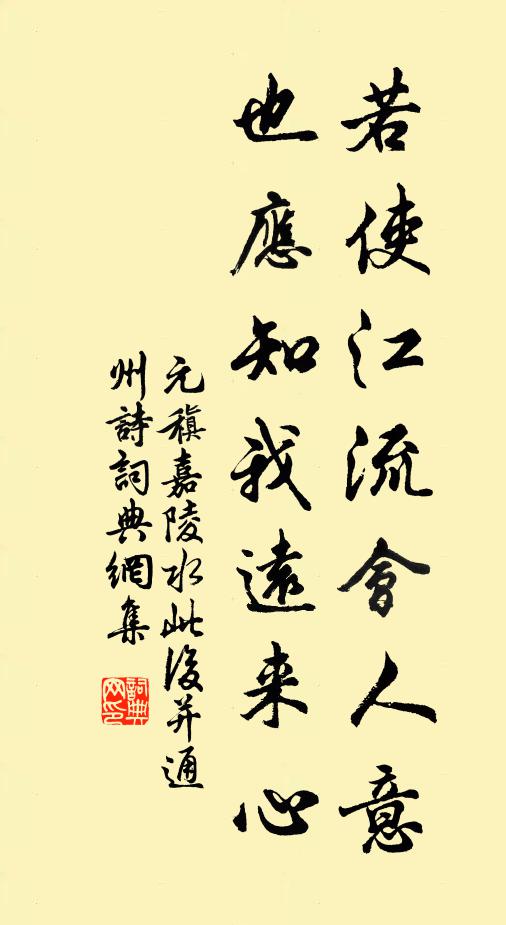 若使江流會人意
也應知我遠来心
元稹嘉陵水此後并通
州詩詞典網集
詞典
网印